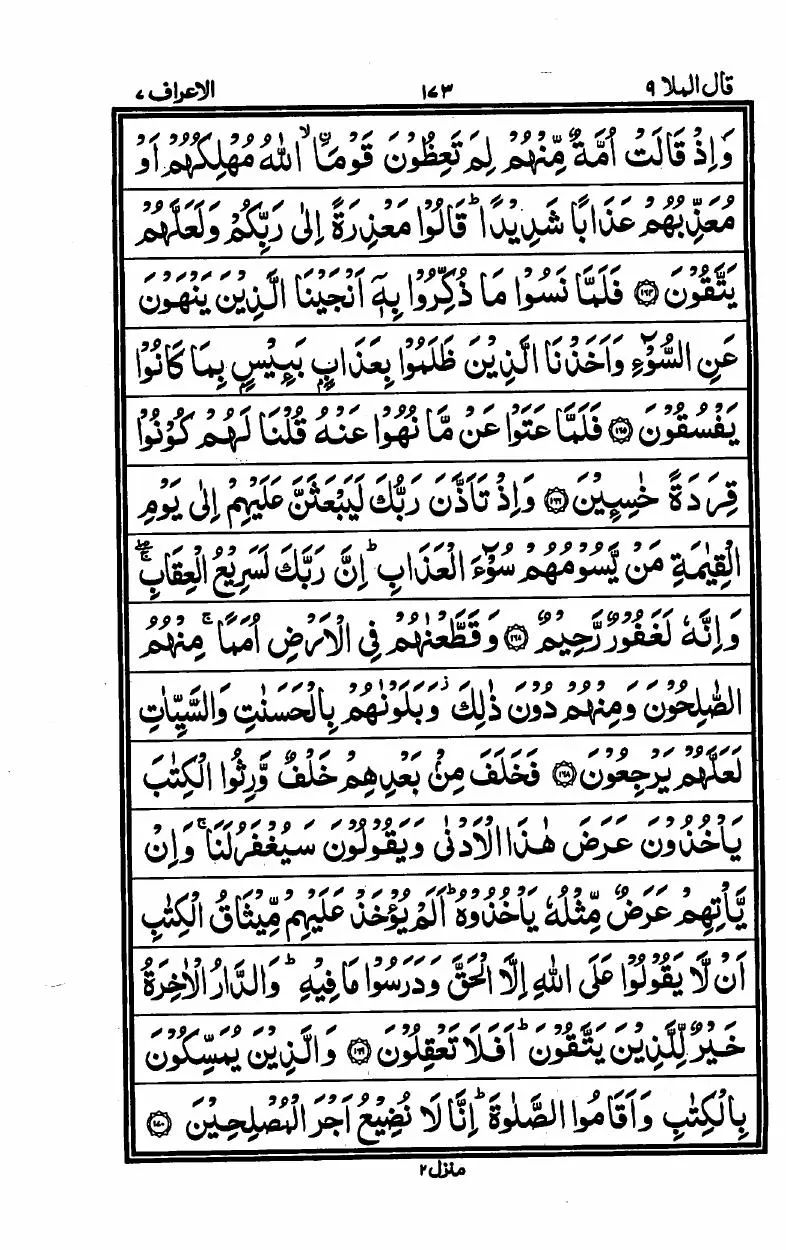 قال الملا ۹
۱۷۳
الاعراف ۷
وَاِذْ قَالَتْ اُمَّةٌ مِّنْهُمْ لِمَ تَعِظُوْنَ قَوْمَاۙ ۨاللّٰهُ مُهْلِكُهُمْ اَوْ
مُعَذِّبُهُمْ عَذَابًا شَدِيْدًاؕ قَالُوْا مَعْذِرَةً اِلٰى رَبِّكُمْ وَلَعَلَّهُمْ
يَتَّقُوْنَ ۝۱۶۴ فَلَمَّا نَسُوْا مَا ذُكِّرُوْا بِهٖۤ اَنْجَيْنَا الَّذِيْنَ يَنْهَوْنَ
عَنِ السُّوْٓءِ وَاَخَذْنَا الَّذِيْنَ ظَلَمُوْا بِعَذَابٍۭ بَـِٕيْسٍۭ بِمَا كَانُوْا
يَفْسُقُوْنَ ۝۱۶۵ فَلَمَّا عَتَوْا عَنْ مَّا نُهُوْا عَنْهُ قُلْنَا لَهُمْ كُوْنُوْا
قِرَدَةً خٰسِـِٕيْنَ ۝۱۶۶ وَاِذْ تَاَذَّنَ رَبُّكَ لَيَبْعَثَنَّ عَلَيْهِمْ اِلٰى يَوْمِ
الْقِيٰمَةِ مَنْ يَّسُوْمُهُمْ سُوْٓءَ الْعَذَابِؕ اِنَّ رَبَّكَ لَسَرِيْعُ الْعِقَابِۖۚ
وَاِنَّهٗ لَغَفُوْرٌ رَّحِيْمٌ ۝۱۶۷ وَقَطَّعْنٰهُمْ فِى الْاَرْضِ اُمَمًاۚ مِنْهُمُ
الصّٰلِحُوْنَ وَمِنْهُمْ دُوْنَ ذٰلِكَؗ وَبَلَوْنٰهُمْ بِالْحَسَنٰتِ وَالسَّيِّاٰتِ
لَعَلَّهُمْ يَرْجِعُوْنَ ۝۱۶۸ فَخَلَفَ مِنْۢ بَعْدِهِمْ خَلْفٌ وَّرِثُوا الْكِتٰبَ
يَاْخُذُوْنَ عَرَضَ هٰذَا الْاَدْنٰى وَيَقُوْلُوْنَ سَيُغْفَرُ لَنَاۚ وَاِنْ
يَّاْتِهِمْ عَرَضٌ مِّثْلُهٗ يَاْخُذُوْهُؕ اَلَمْ يُؤْخَذْ عَلَيْهِمْ مِّيْثَاقُ الْكِتٰبِ
اَنْ لَّا يَقُوْلُوْا عَلَى اللّٰهِ اِلَّا الْحَقَّ وَدَرَسُوْا مَا فِيْهِؕ وَالدَّارُ الْاٰخِرَةُ
خَيْرٌ لِّلَّذِيْنَ يَتَّقُوْنَؕ اَفَلَا تَعْقِلُوْنَ ۝۱۶۹ وَالَّذِيْنَ يُمَسِّكُوْنَ
بِالْكِتٰبِ وَاَقَامُوا الصَّلٰوةَؕ اِنَّا لَا نُضِيْعُ اَجْرَ الْمُصْلِحِيْنَ ۝۱۷۰
منزل ۲